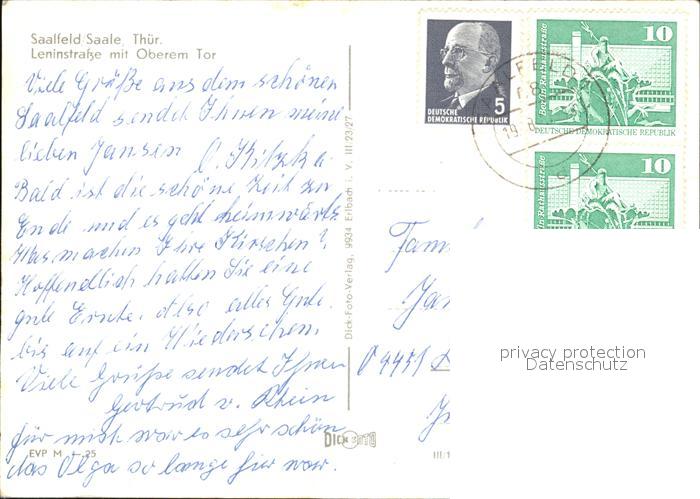 Saalfeld Saale, Thür.
Leninstraße mit Oberem Tor
Viele Grüße aus dem schönen
Saalfeld sendet Ihnen meine
lieben Jansen O. Kitzka
Bald ist die schöne Zeit zu
Ende und es geht heimwärts
Was machen Ihre Kirschen?
Hoffendlich hatten Sie eine
gute Ernte. Also alles Gute
bis auf ein Wiedersehen.
Viele Grüße sendet Ihnen
Gertrud v. Rhein
für mich war es sehr schön
das Olga so lange hier war.
EVP M -.25
Dick-Foto-Verlag, 9934 Erlbach i. V. III 23/27
DICK FOTO
III/1
5
DEUTSCHE
DEMOKRATISCHE REPUBLIK
10
Berlin Rathausstraße
DEUTSCHE DEMOKRATISCHE REPUBLIK
10
Berlin Rathausstraße
Fami
Jan
privacy protection
Datenschutz